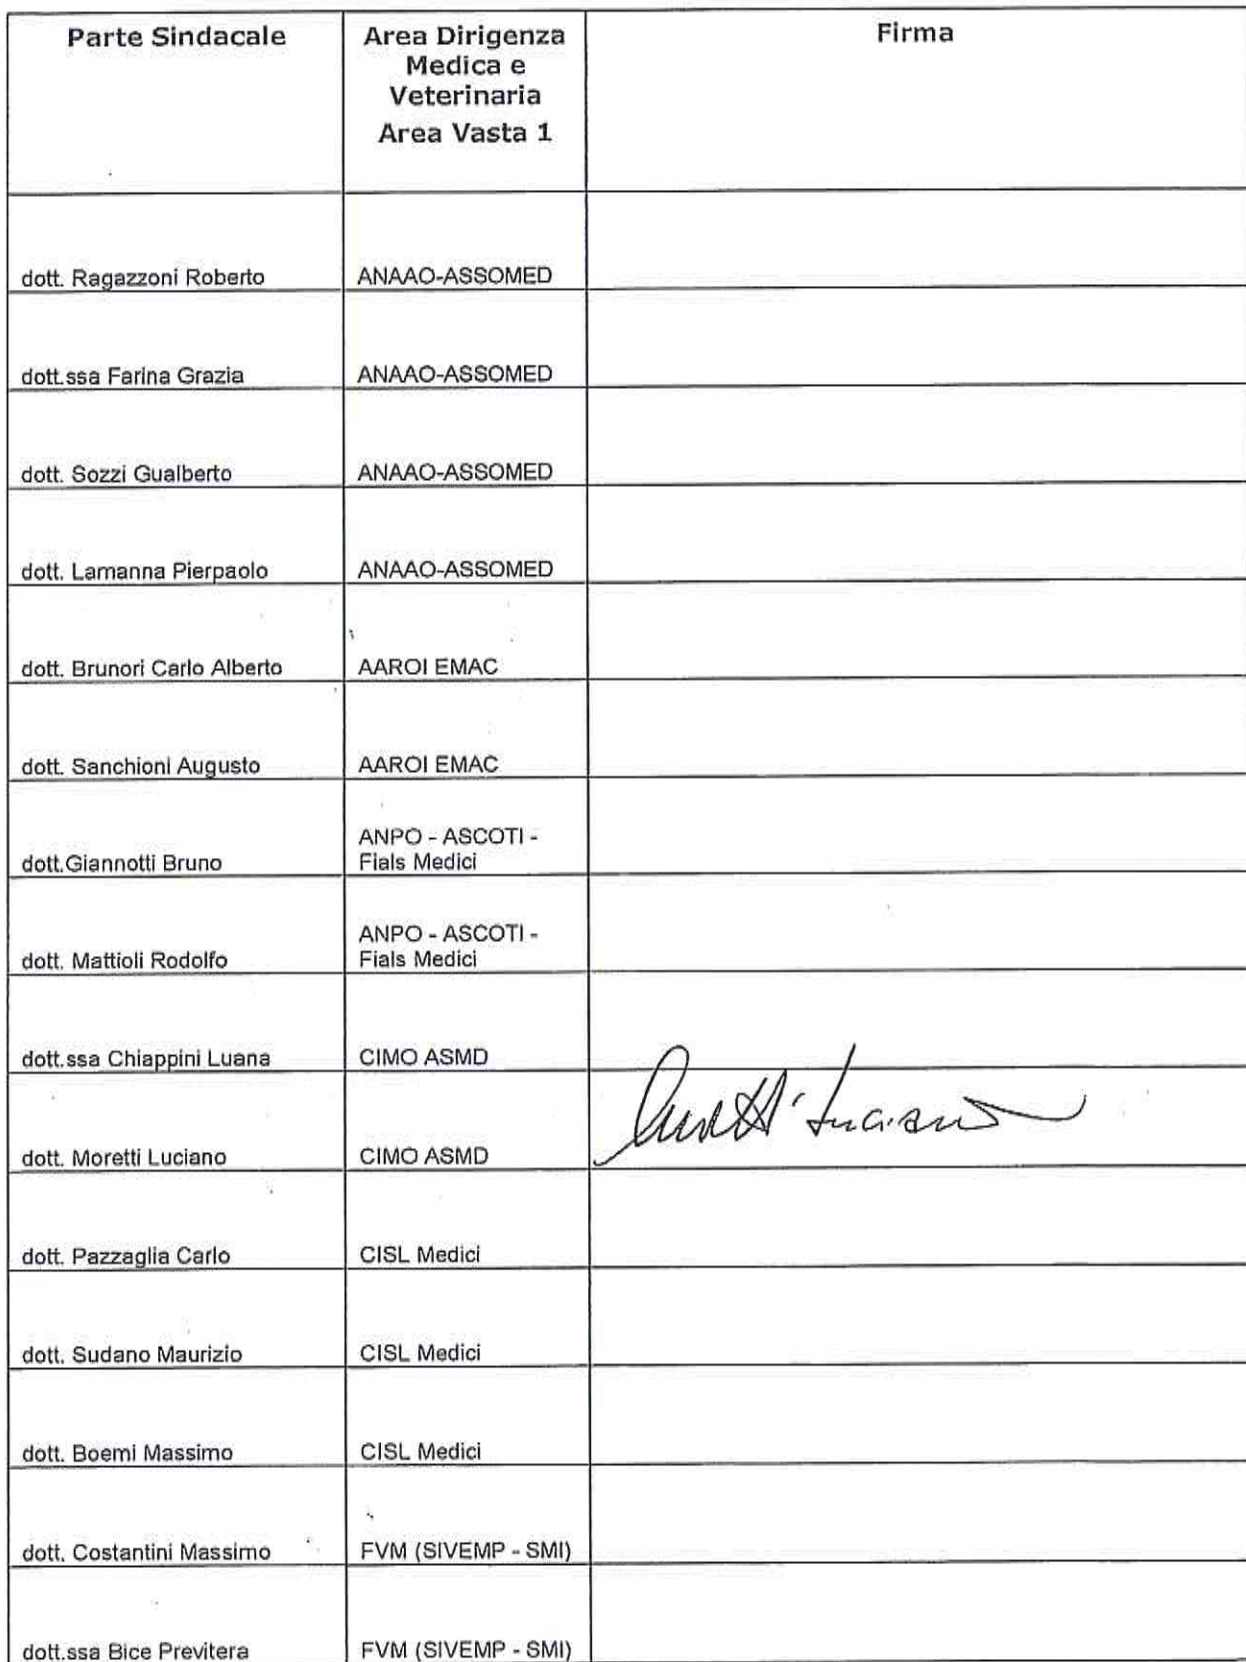 Parte Sindacale
Area Dirigenza
Medica e
Veterinaria
Area Vasta 1
Firma
dott. Ragazzoni Roberto ANAAO-ASSOMED
dott.ssa Farina Grazia ANAAO-ASSOMED
dott. Sozzi Gualberto ANAAO-ASSOMED
dott. Lamanna Pierpaolo ANAAO-ASSOMED
dott. Brunori Carlo Alberto AAROI EMAC
dott. Sanchioni Augusto AAROI EMAC
dott.Giannotti Bruno
ANPO - ASCOTI -
Fials Medici
dott. Mattioli Rodolfo
ANPO - ASCOTI -
Fials Medici
dott.ssa Chiappini Luana CIMO ASMD
dott. Moretti Luciano CIMO ASMD Moretti Luciano
dott. Pazzaglia Carlo CISL Medici
dott. Sudano Maurizio CISL Medici
dott. Boemi Massimo CISL Medici
dott. Costantini Massimo FVM (SIVEMP - SMI)
dott.ssa Bice Previtera FVM (SIVEMP - SMI)